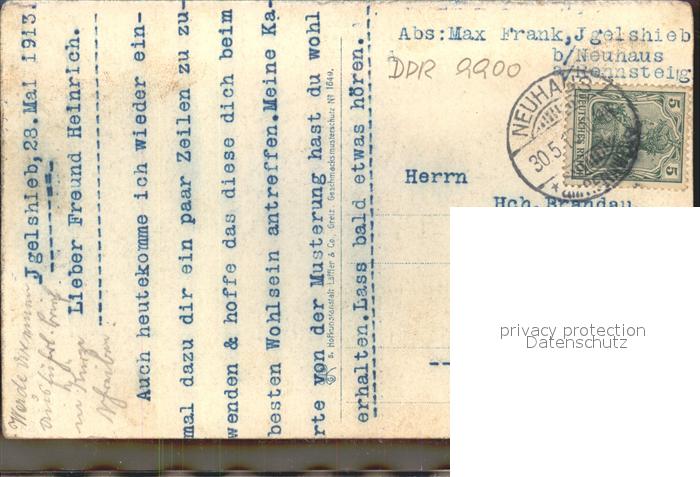 Jgelshieb,28.Mai 1913.
Lieber Freund Heinrich.
Auch heutekomme ich wieder ein-
mal dazu dir ein paar Zeilen zu zu-
wenden & hoffe das diese dich beim
besten Wohlsein antreffen.Meine Ka-
rte von der Musterung hast du wohl
erhalten.Lass bald etwas hören.
Werde
ausführl. Brief
in Kürze
schreiben.
s. Hofkunstanstalt Löffler & Co., Greiz. Geschmacksmusterschutz Nº 1649.
Abs:Max Frank,Jgelshieb
b/Neuhaus
a/Rennsteig
DDR 9900
NEUHA
30.5.
RENNWEG
5
DEUTSCHES REICH
5
Herrn
Hch.Brandau
privacy protection
Datenschutz